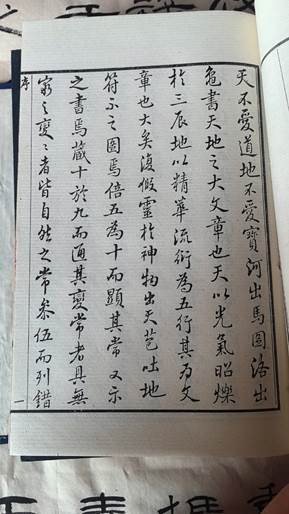 天不愛道地不愛寶河出馬圖洛出
龜書天地之大文章也天以光氣昭爍
於三辰地以精華流衍為五行其為文
章也大矣復假靈於神物出天苞吐地
符示之圖焉倍五為十而顯其常又示
之書焉藏十於九而通其變常者具無
窮之變變者皆自然之常參伍而列錯
序
一